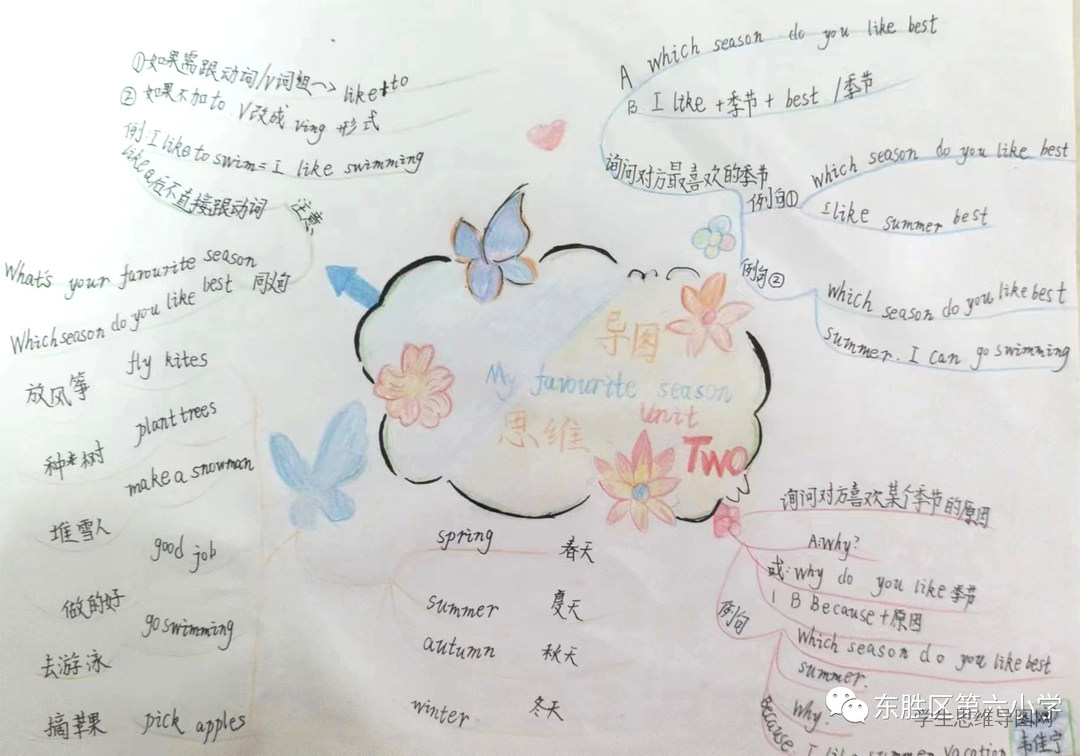 ①如果需跟动词/V词组→like+to
②如果不加to V改成ving形式
例:I like to swim = I like swimming
like后不直接跟动词
注意
What's your favourite season
Which season do you like best
同义句
fly kites
放风筝
plant trees
种树
make a snowman
堆雪人
good job
做的好
go swimming
去游泳
pick apples
摘苹果
spring 春天
summer 夏天
autumn 秋天
winter 冬天
导图
My favourite season
Unit
思维
Two
A which season do you like best
B I like +季节+ best /季节
询问对方最喜欢的季节
例句①
which season do you like best
I like summer best
例句②
which season do you like best
summer. I can go swimming
询问对方喜欢某个季节的原因
A:Why?
或:why do you like季节
B Because+原因
例句
Which season do you like best
summer.
Why
Because I like summer vacation
东胜区第六小学
学生思维导图网